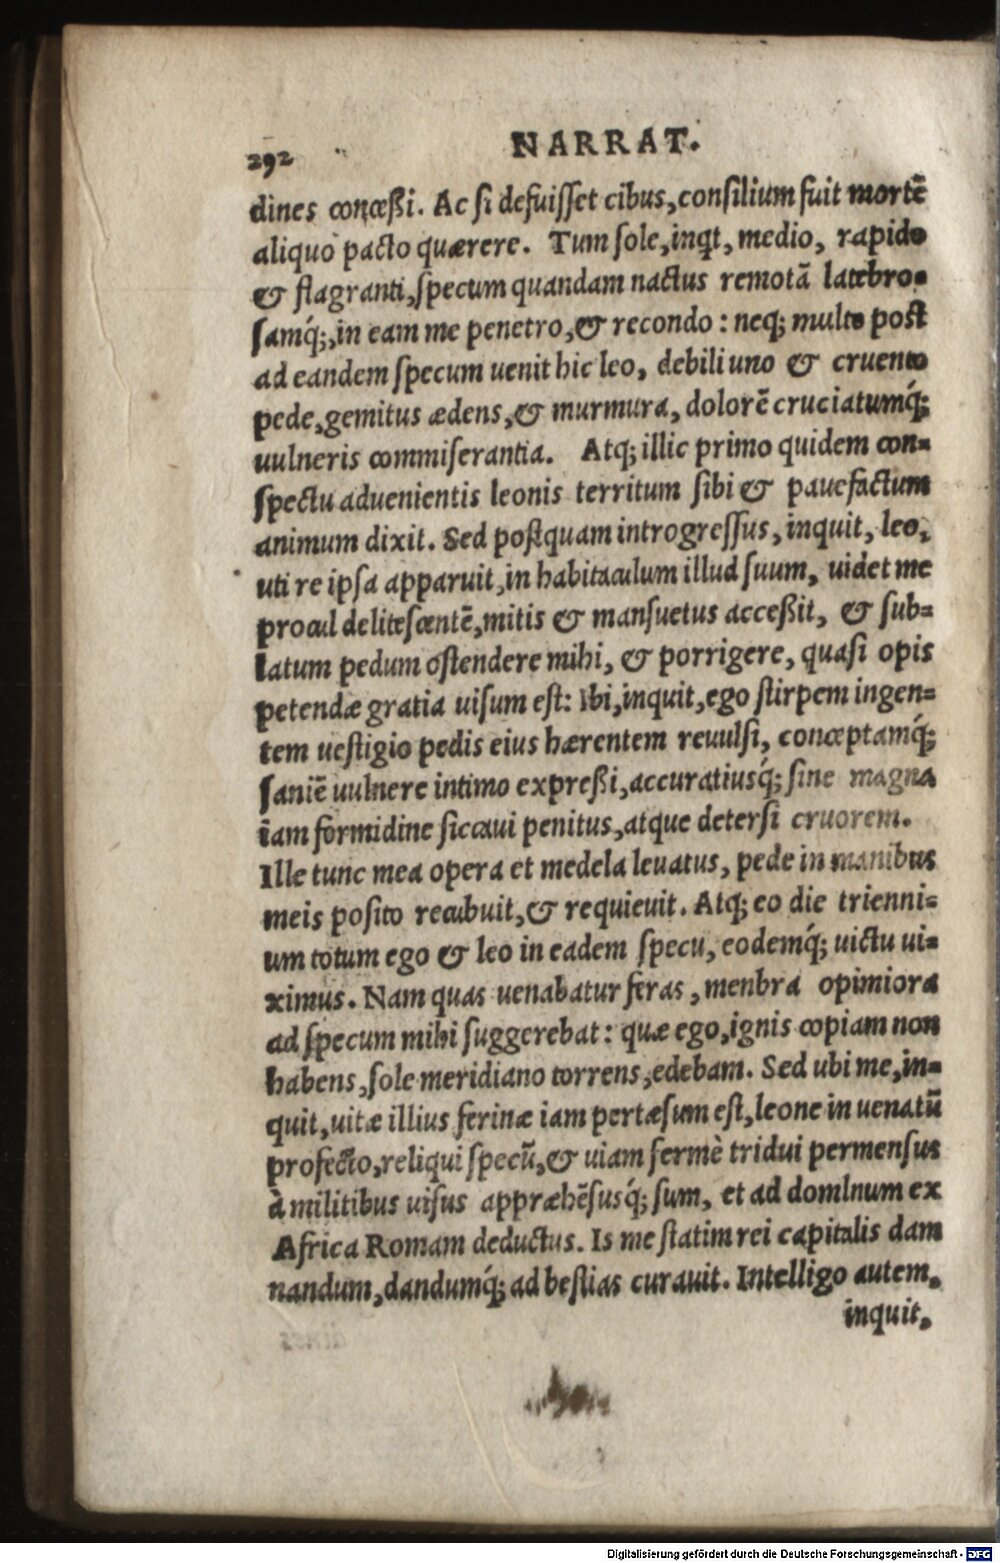 292 NARRAT.
dines conceßi. Ac si defuisset cibus, consilium fuit mortē
aliquo pacto quærere. Tum sole, inqt, medio, rapido
& flagranti, specum quandam nactus remotā latebro-
samq́;, in eam me penetro, & recondo: neq; multo post
ad eandem specum uenit hic leo, debili uno & cruento
pede, gemitus ædens, & murmura, dolorē cruciatumq́;
uulneris commiserantia. Atq; illic primo quidem con-
spectu aduenientis leonis territum sibi & pauefactum
animum dixit. Sed postquam introgressus, inquit, leo,
uti re ipsa apparuit, in habitaculum illud suum, uidet me
procul delitescentē, mitis & mansuetus acceßit, & sub-
latum pedum ostendere mihi, & porrigere, quasi opis
petendæ gratia uisum est: Ibi, inquit, ego stirpem ingen-
tem uestigio pedis eius hærentem reuulsi, conceptamq́;
saniē uulnere intimo expreßi, accuratiusq́; sine magna
iam formidine siccaui penitus, atque detersi cruorem.
Ille tunc mea opera et medela leuatus, pede in manibus
meis posito recubuit, & requieuit. Atq; eo die trienni-
um totum ego & leo in eadem specu, eodemq́; uictu ui-
ximus. Nam quas uenabatur feras, menbra opimiora
ad specum mihi suggerebat: quæ ego, ignis copiam non
habens, sole meridiano torrens, edebam. Sed ubi me, in-
quit, uitæ illius ferinæ iam pertæsum est, leone in uenatū
profecto, reliqui specū, & uiam fermè tridui permensus
à militibus uisus appræhēsusq́; sum, et ad domInum ex
Africa Romam deductus. Is me statim rei capitalis dam
nandum, dandumq́; ad bestias curauit. Intelligo autem,
inquit,
Digitalisierung gefördert durch die Deutsche Forschungsgemeinschaft - DFG